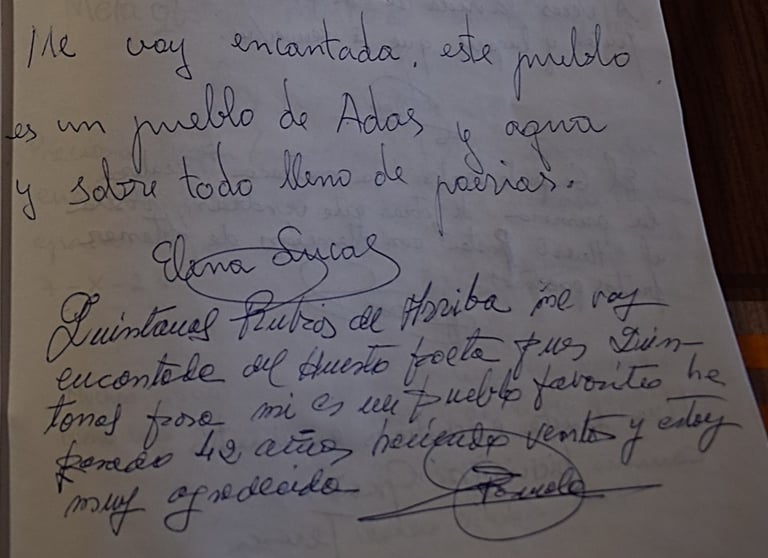 Me voy encantada, este pueblo
es un pueblo de Adas y agua
y sobre todo lleno de poesias.
Elena Lucas
Quintanas Rubias de Arriba me voy
encantada del nuestro poeta pues Quin-
tanas para mi es un pueblo favorito he
pasado 42 años haciendo ventas y estoy
muy agradecida